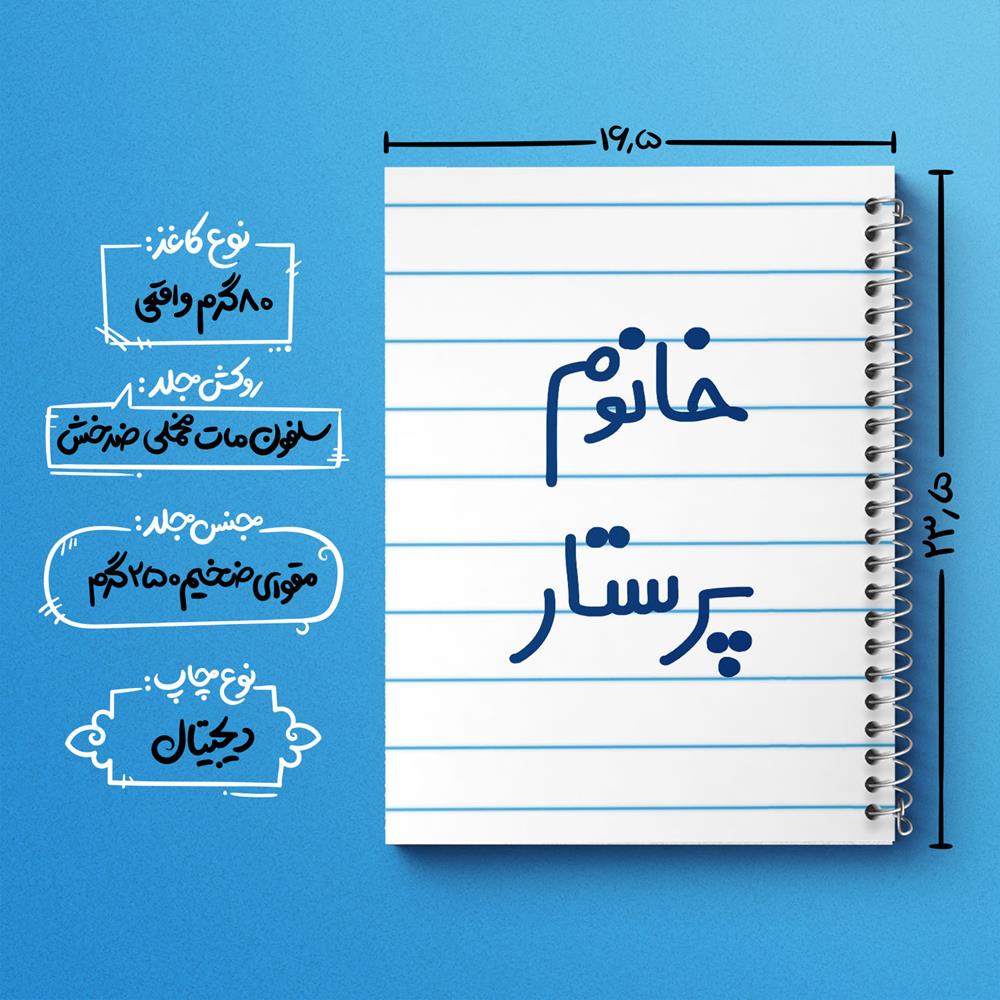 ۱۶٫۵
۲۳٫۵
خانوم
پرستار
نوع کاغذ:
۸۰ گرم واقعی
روکش جلد:
سلفون مات مخملی ضدخش
جنس جلد:
مقوای ضخیم ۲۵۰ گرم
نوع چاپ:
دیجیتال